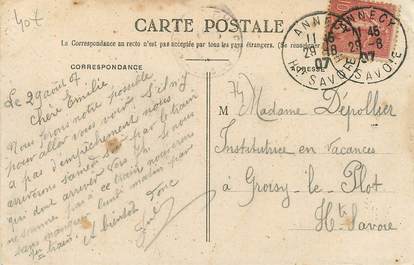 40t
CARTE POSTALE
La Correspondance au recto n'est pas acceptée par tous les pays étrangers. (Se renseigner
CORRESPONDANCE
ADRESSE
ANNECY
11 45
29 -8
07
Hte SAVOIE
ANNECY
11 45
29 -8
07
SAVOIE
Le 29 août 07
Chère Emilie
Nous ferons notre possible
pour aller vous voir. S'il n'y
a pas d'empêchement nous
arriverons samedi soir par le train
qui doit arriver vers 7h. Si nous
ne sommes pas à ce train nous irons
sans manquer lundi matin par
1er train.
A bientôt donc
74
Madame Dépollier
Institutrice en vacances
à Groisy-le-Plot
Hte Savoie